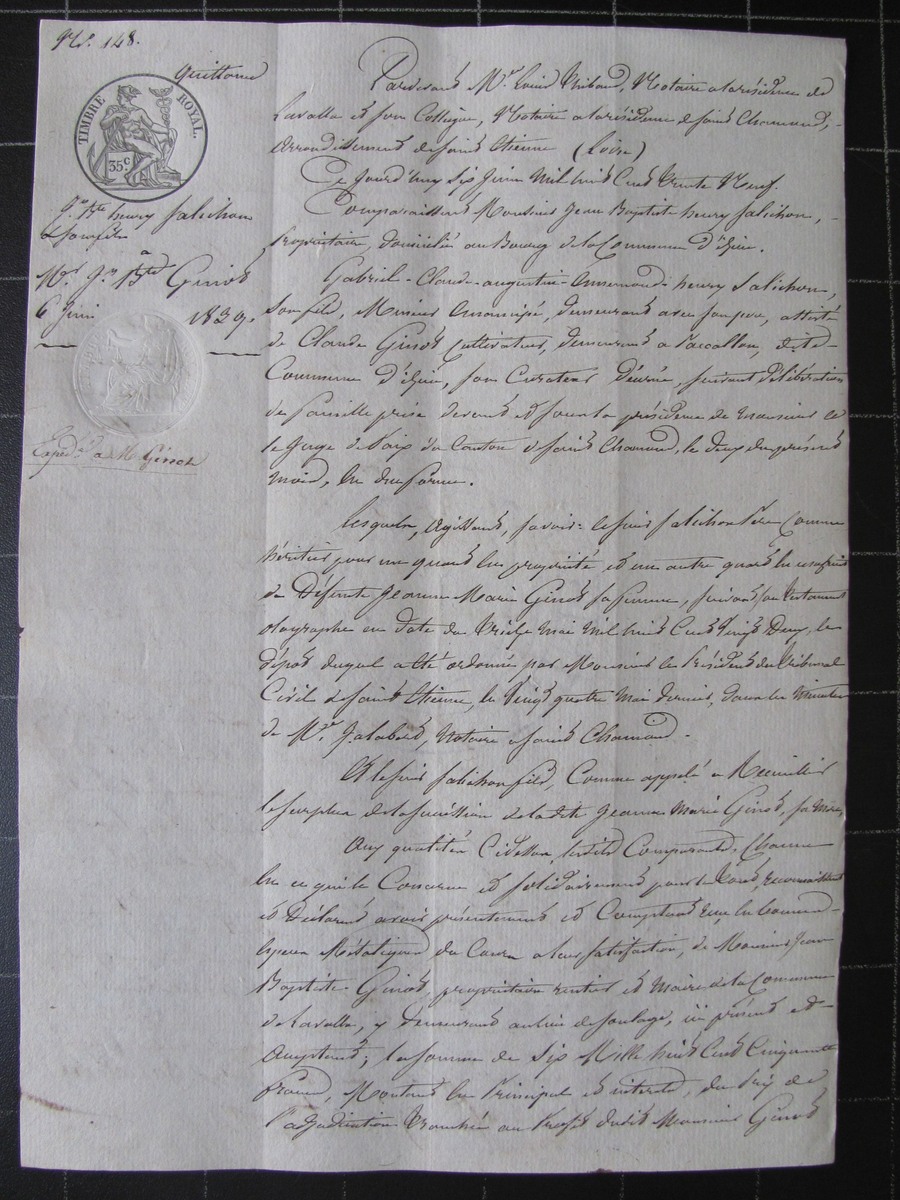 No. 148.
quittance
TIMBRE ROYAL.
35 c
Jn Bte henry Salichon
& son fils
a
Mr Jn Bte Ginot
6 Juin 1839.
Expéd. à Mr Ginot
Pardevant Me Louis Thibaud, Notaire a la résidence de
Lavalla et son Collègue, Notaire a la résidence de saint Chamond,
Arrondissement de saint Etienne (Loire)
Ce Jourd'huy Six Juin Mil huit Cent Trente Neuf.
Comparaissent Monsieur Jean Baptiste henry Salichon,
Propriétaire, domicilié au Bourg de la Commune d'Izieu.
Gabriel-Claude-augustin henry Salichon,
son fils, Mineur émancipé, demeurant avec son père, assisté
de Claude Ginot Cultivateur, demeurant a dite
Commune d'Izieu, son Curateur Décrété, suivant délibération
de famille prise devant et sous la présidence de Monsieur le
le Juge de Paix du Canton de saint Chamond, le deux du présent
mois, En due forme.
Lesquels, Agissant, savoir: le sieur Salichon Père Comme
héritier pour un quart En propriété et un autre quart En usufruit
de Défunte Jeanne Marie Ginot sa femme, suivant son Testament
olographe en date du Treize Mai Mil huit Cent Vingt Deux, le
dépôt duquel a été ordonné par Monsieur le Président du Tribunal
Civil de saint Etienne, le Vingt quatre Mai dernier, dans les Minutes
de Me Jalabert, Notaire a saint Chamond.
Et le sieur Salichon fils, Comme appelé a Recueillir
le surplus de la succession de ladite Jeanne Marie Ginot, sa Mère,
Aux qualités Ci dessus, lesdits Comparants, Chacun
En ce qui le Concerne et solidairement pour le Tout, reconnaissent
et Déclarent avoir présentement et Comptant reçu, En bonnes
Espèces Métaliques du Cours a leur satisfaction, de Monsieur Jean
Baptiste Ginot, propriétaire rentier et Maire de la Commune
de Lavalla, y demeurant au lieu de soulage, ici présent et
Acceptant; la somme de Six Mille huit Cent Cinquante
francs, Montant En Principal et intérêts, du Prix de
l'adjudication Tranchée au Profit dudit Monsieur Ginot